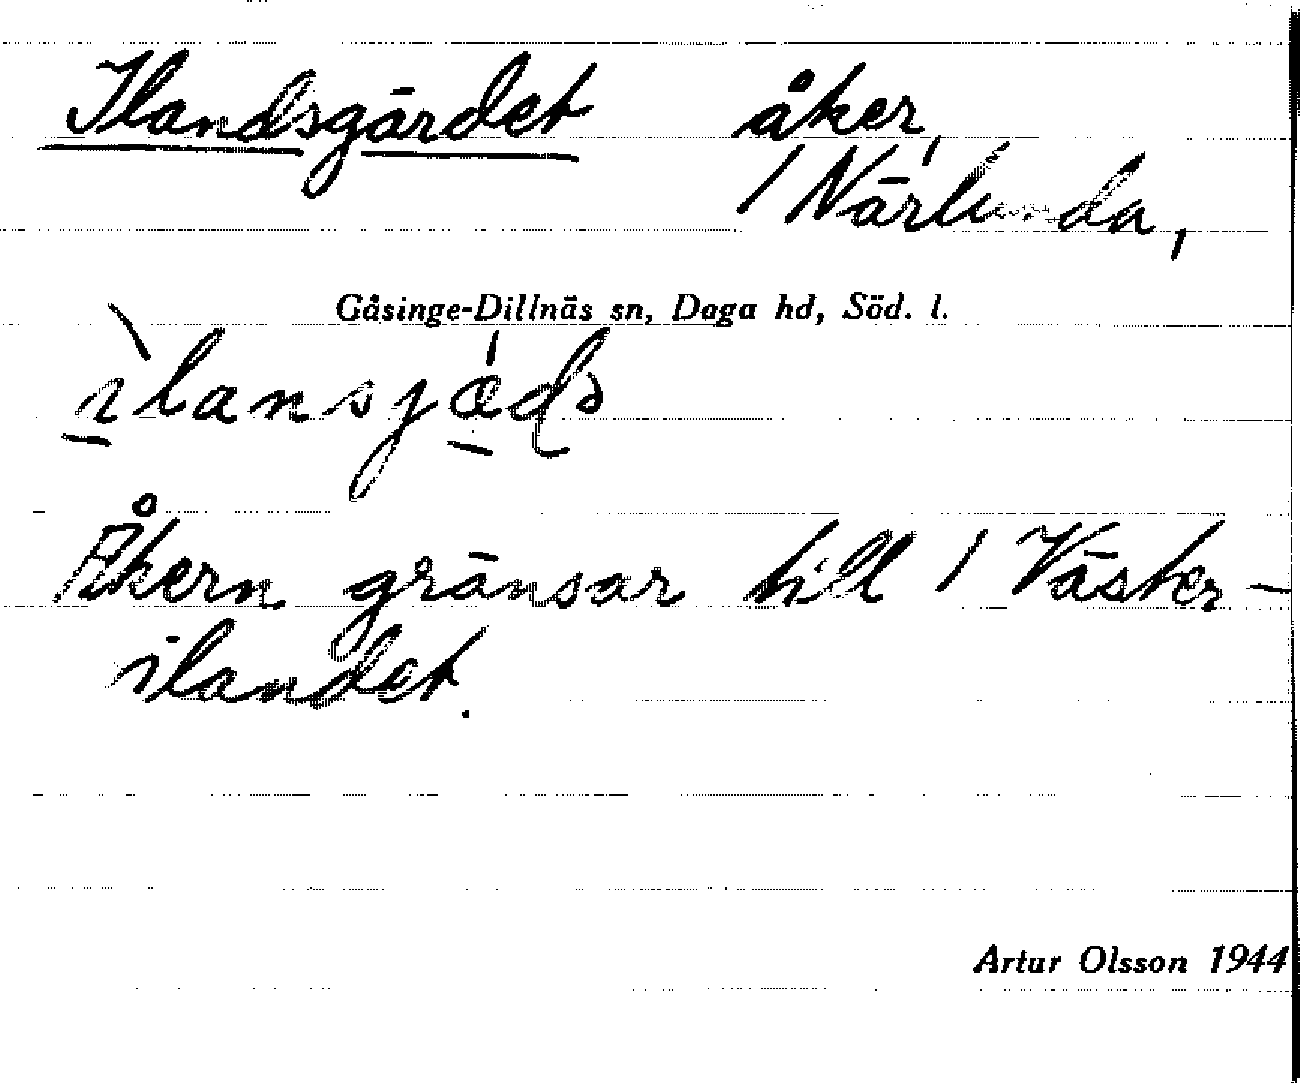 Ilandsgärdet åker,
/ Närlunda,
Gåsinge-Dillnäs sn, Daga hd, Söd. l.
ìlansjæ̀ḍə
Åkern gränsar till / Väster-
ilandet.
Artur Olsson 1944